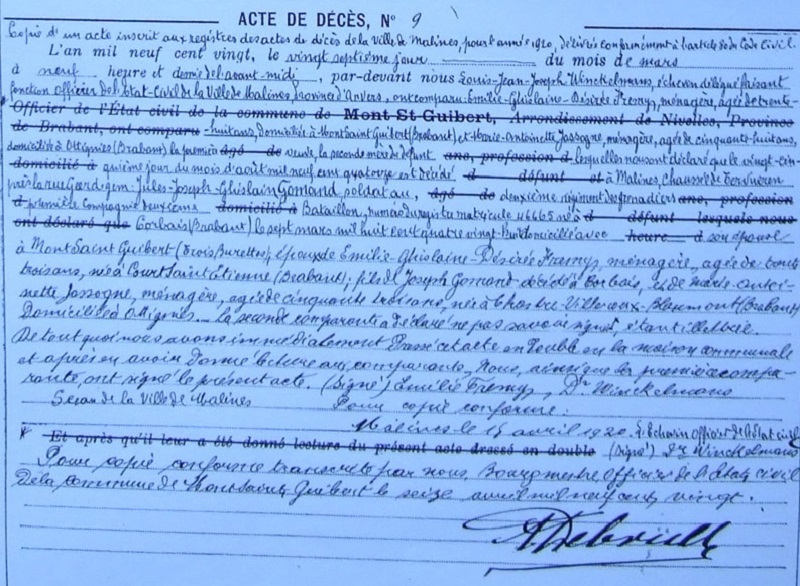 ACTE DE DÉCÈS, No 9
Copie de un acte inscrit aux registres des actes de décès de la Ville de Malines, pour l'année 1920, délivrée conformément à l'article 80 du Code Civil.
L'an mil neuf cent vingt, le vingt septième jour du mois de mars
à neuf heure et demi de l'avant-midi, par-devant nous Louis-Jean-Joseph Winckelmans, échevin délégué faisant
fonction officier de l'État-Civil de la Ville de Malines, province d'Anvers, ont comparu Emilie-Ghislaine-Désirée Fremy, ménagère, agée de trente-
Officier de l'État civil de la commune de Mont-St-Guibert, Arrondissement de Nivelles, Province
de Brabant, ont comparu huit ans, domiciliée à Mont Saint Guibert (Brabant) et Marie-Antoinette Jassogne, ménagère, agée de cinquante-huit ans,
domiciliée à Ottignies (Brabant) la première âgé de veuve, la seconde mère de défunt ans, profession d lesquelles nous ont déclaré que le vingt-cin-
domicilié à quième jour du mois d'août mil neuf cent quatorze est décédé d défunt et à Malines, Chaussée de Tervueren
près la rue Gardigem Jules-Joseph-Ghislain Gomand, soldat au, âgé de deuxième régiment des grenadiers ans, profession
d première Compagnie deuxième domicilié à Bataillon, numéro du registre matricule 46665 né à d défunt lesquels nous
ont déclaré que Corbais (Brabant) le sept mars mil huit cent quatre vingt-huit domicilié avec heure d son épouse
à Mont Saint Guibert (Trois Burettes), époux de Emilie-Ghislaine-Désirée Fremy, ménagère, agée de trente
trois ans, née à Court Saint Etienne (Brabant); fils de Joseph Gomand décédé à Corbais, et de Marie-Antoi-
nette Jassogne, ménagère, agée de cinquante trois ans, née à Chastre-Villeroux-Blanmont (Brabant)
domiciliée à Ottignies. La seconde comparante a déclaré ne pas savoir signer, étant illettrée.
De tout quoi nous avons immédiatement dressé cet acte en double en la maison communale
et après en avoir donné lecture aux comparantes, Nous, ainsi que la première compa-
rante, ont signé le présent acte. (Signé) Emilie Fremy, Dr Winckelmans
Sceau de la Ville de Malines Pour copie conforme:
Malines le 15 avril 1920. L'Echevin Officier de l'état civil
Et après qu'il leur a été donné lecture du présent acte dressé en double (signé) Dr Winckelmans
Pour copie conforme transcrite par nous, Bourgmestre Officier de l'état civil
de la commune de Mont Saint Guibert le seize avril mil neuf cent vingt.